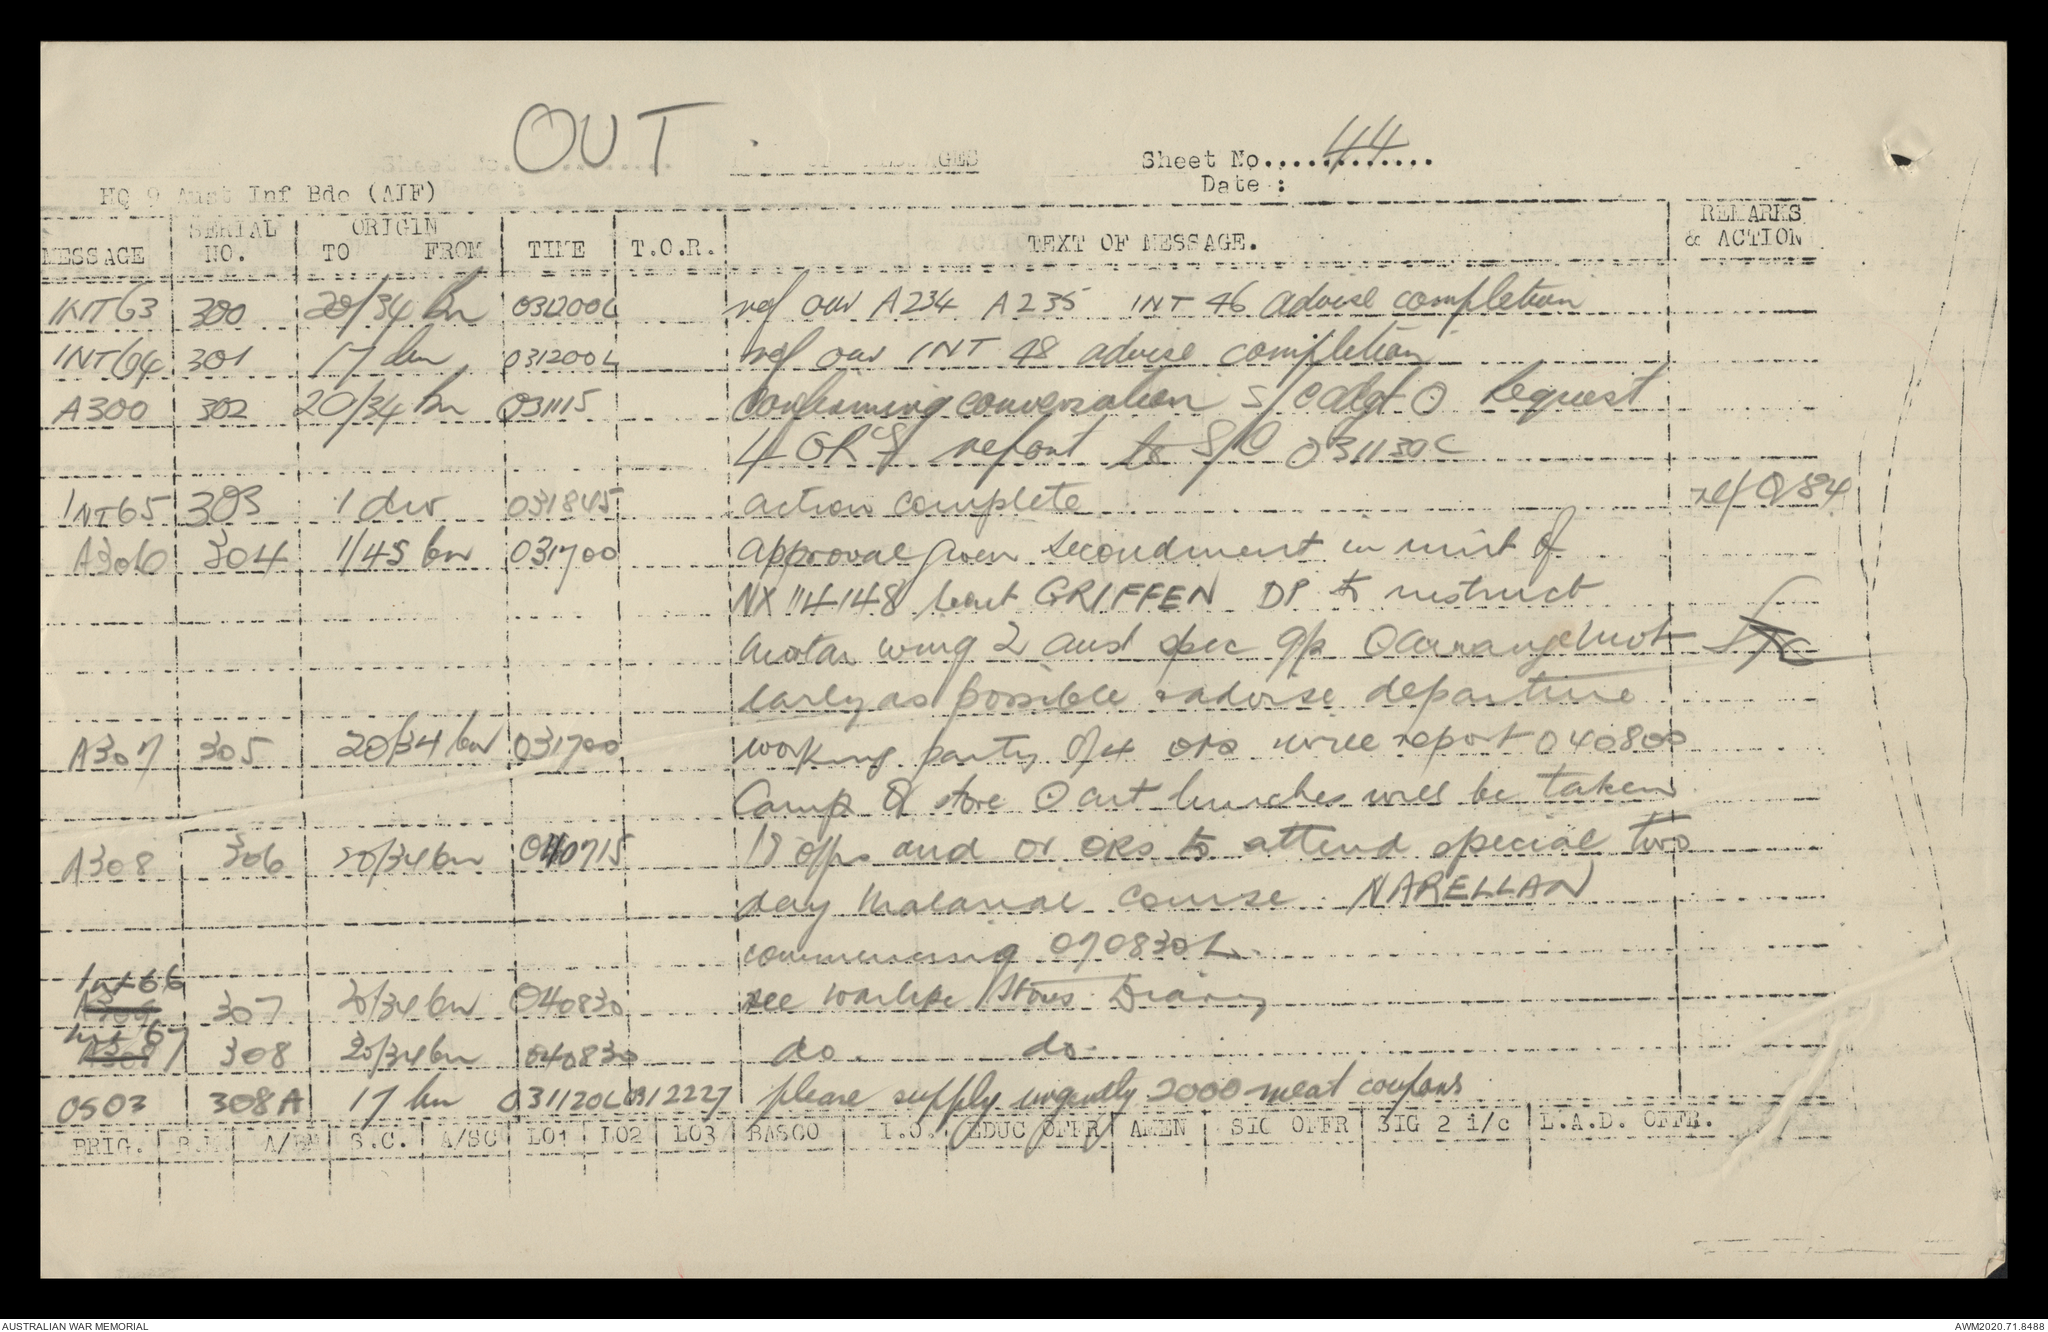 OUT
Sheet No....44....
Date :
HQ 9 Aust Inf Bde (AIF)
MESSAGE SERIAL NO. ORIGIN TO FROM TIME T.O.R. TEXT OF MESSAGE. REMARKS & ACTION
INT63 300 20/34 bn 031200L ref our A234 A235 INT 46 advise completion
INT64 301 17 bn 031200L ref our INT 48 advise completion
A300 302 20/34 bn 031115 confirming conversation S/C adjt O request
4 ORs report to S/C 031130L
INT65 303 1 div 031845 action complete ref Q84
A306 304 1/45 bn 031700 approval given secondment in unit of
NX 114148 Lieut GRIFFEN DP to instruct
mortar wing 2 aust spec gp O arrange mvt
early as possible & advise departure
A307 305 20/34 bn 031700 working party of 4 ors will report 040800
Camp Q store O cut lunches will be taken
A308 306 20/34 bn 040715 18 offrs and or ORs to attend special two
day malarial course NARELLAN
commencing 070830L
Int 66 307 20/34 bn 040830 see warlike Stores Diary
Int 67 308 20/34 bn 040830 do do
OS03 308A 17 bn 031120L 0312227 please supply urgently 2000 meat coupons
BRIG. B.M. A/BM S.C. A/SC LO1 LO2 LO3 BASCO I.O. EDUC OFFR AMEN SIG OFFR SIG 2 i/c L.A.D. OFFR.
AUSTRALIAN WAR MEMORIAL
AWM2020.71.8488